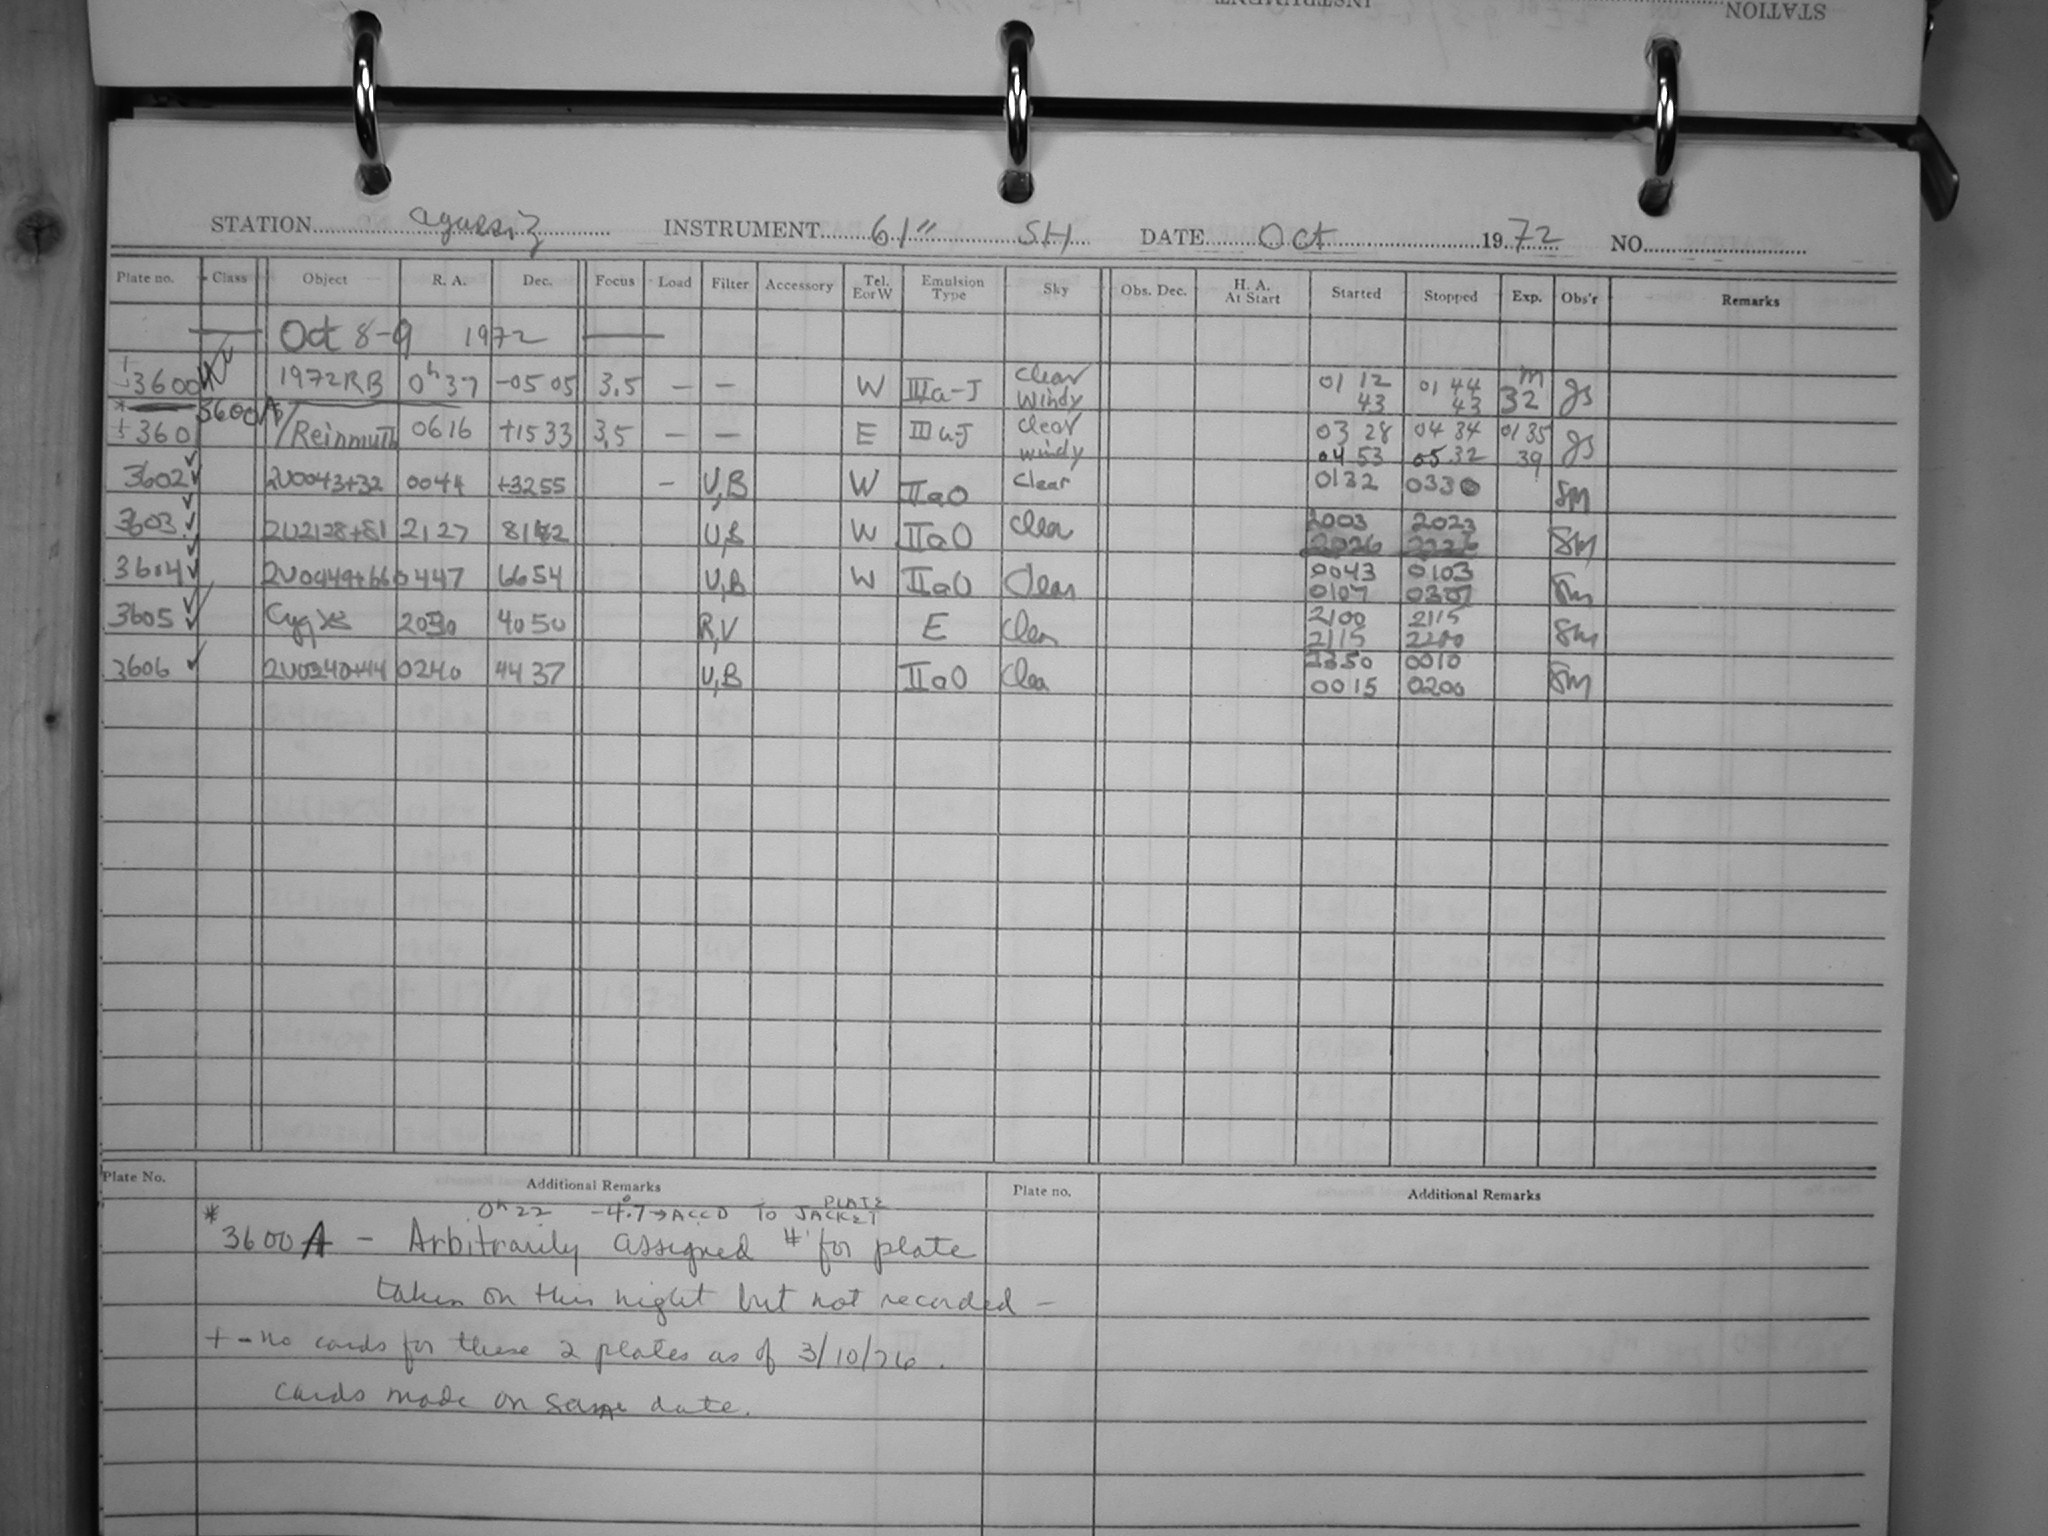 STATION Agassiz INSTRUMENT 61" SH DATE Oct 1972 NO.
Plate no. Class Object R. A. Dec. Focus Load Filter Accessory Tel. E or W Emulsion Type Sky Obs. Dec. H. A. At Start Started Stopped Exp. Obs'r Remarks
Oct 8-9 1972
+ 3600 1972RB 0h37 -05 05 3.5 - - W IIIa-J clear windy 01 12 43 01 44 43 32m JS
* 3600A
+ 360 /Reinmuth 0616 +1533 3.5 - - E IIIaJ clear windy 03 28 04 34 0135 JS
04 53 05 32 39
3602 ✓ 2U0043+32 0044 +3255 - U,B W IIaO clear 0132 0330 SM
3603 ✓ 2U2128+81 2127 U,B W IIaO Clear 2003 2023 SM
3604 ✓ 2U0449+66 0447 6654 U,B W IIaO Clear 0043 0103 SM
0107 0307
3605 ✓ Cyg 4050 R,V E Clear 2100 2115 SM
2115 2200
3606 ✓ 0240 4437 U,B IIaO Clear 2350 0010 SM
0015 0200
Plate No. Additional Remarks Plate no. Additional Remarks
0h 22 -4.°7 → ACCD TO PLATE JACKET
* 3600A - Arbitrarily assigned # for plate
taken on this night but not recorded -
+ - no cards for these 2 plates as of 3/10/76.
cards made on same date.
STATION
INSTRUMENT